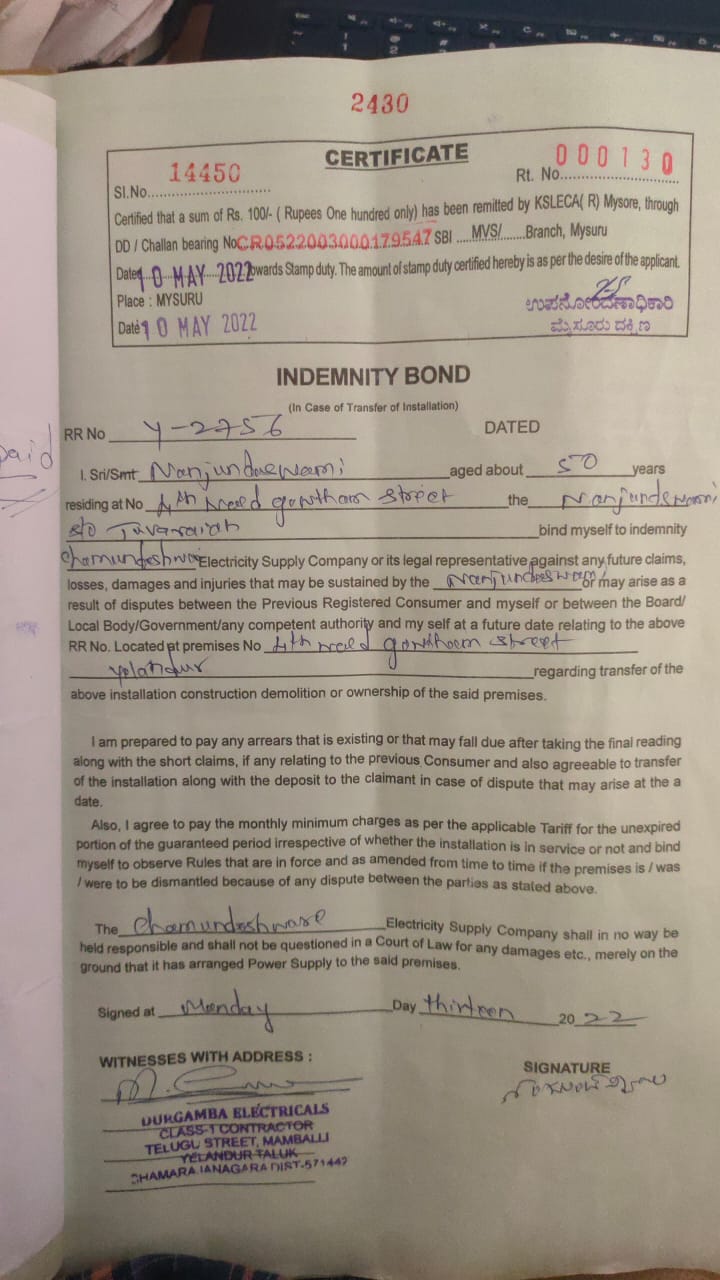 2430
CERTIFICATE
Sl.No. 14450 Rt. No. 000130
Certified that a sum of Rs. 100/- ( Rupees One hundred only) has been remitted by KSLECA( R) Mysore, through
DD / Challan bearing No CR0522003000179547 SBI .....MVS/.......Branch, Mysuru
Dated 10 MAY 2022 towards Stamp duty. The amount of stamp duty certified hereby is as per the desire of the applicant.
Place : MYSURU
ಉಪನೋಂದಣಾಧಿಕಾರಿ
Date 10 MAY 2022
ಮೈಸೂರು ದಕ್ಷಿಣ
INDEMNITY BOND
(In Case of Transfer of Installation)
RR No Y-2756 DATED
paid
I. Sri/Smt Nanjundaswami aged about 50 years
residing at No 4th gowtham street the Nanjundswami
S/o bind myself to indemnity
Electricity Supply Company or its legal representative against any future claims,
losses, damages and injuries that may be sustained by the Nanjundeswami or may arise as a
result of disputes between the Previous Registered Consumer and myself or between the Board/
Local Body/Government/any competent authority and my self at a future date relating to the above
RR No. Located at premises No 4th gowtham street
Yelandur regarding transfer of the
above installation construction demolition or ownership of the said premises.
I am prepared to pay any arrears that is existing or that may fall due after taking the final reading
along with the short claims, if any relating to the previous Consumer and also agreeable to transfer
of the installation along with the deposit to the claimant in case of dispute that may arise at the a
date.
Also, I agree to pay the monthly minimum charges as per the applicable Tariff for the unexpired
portion of the guaranteed period irrespective of whether the installation is in service or not and bind
myself to observe Rules that are in force and as amended from time to time if the premises is / was
/ were to be dismantled because of any dispute between the parties as stated above.
The Chamundeshware Electricity Supply Company shall in no way be
held responsible and shall not be questioned in a Court of Law for any damages etc., merely on the
ground that it has arranged Power Supply to the said premises.
Signed at Monday Day thirteen 2022
WITNESSES WITH ADDRESS :
SIGNATURE
DURGAMBA ELECTRICALS
CLASS-1 CONTRACTOR
TELUGU STREET, MAMBALLI
YELANDUR TALUK
CHAMARAJANAGARA DIST-571442